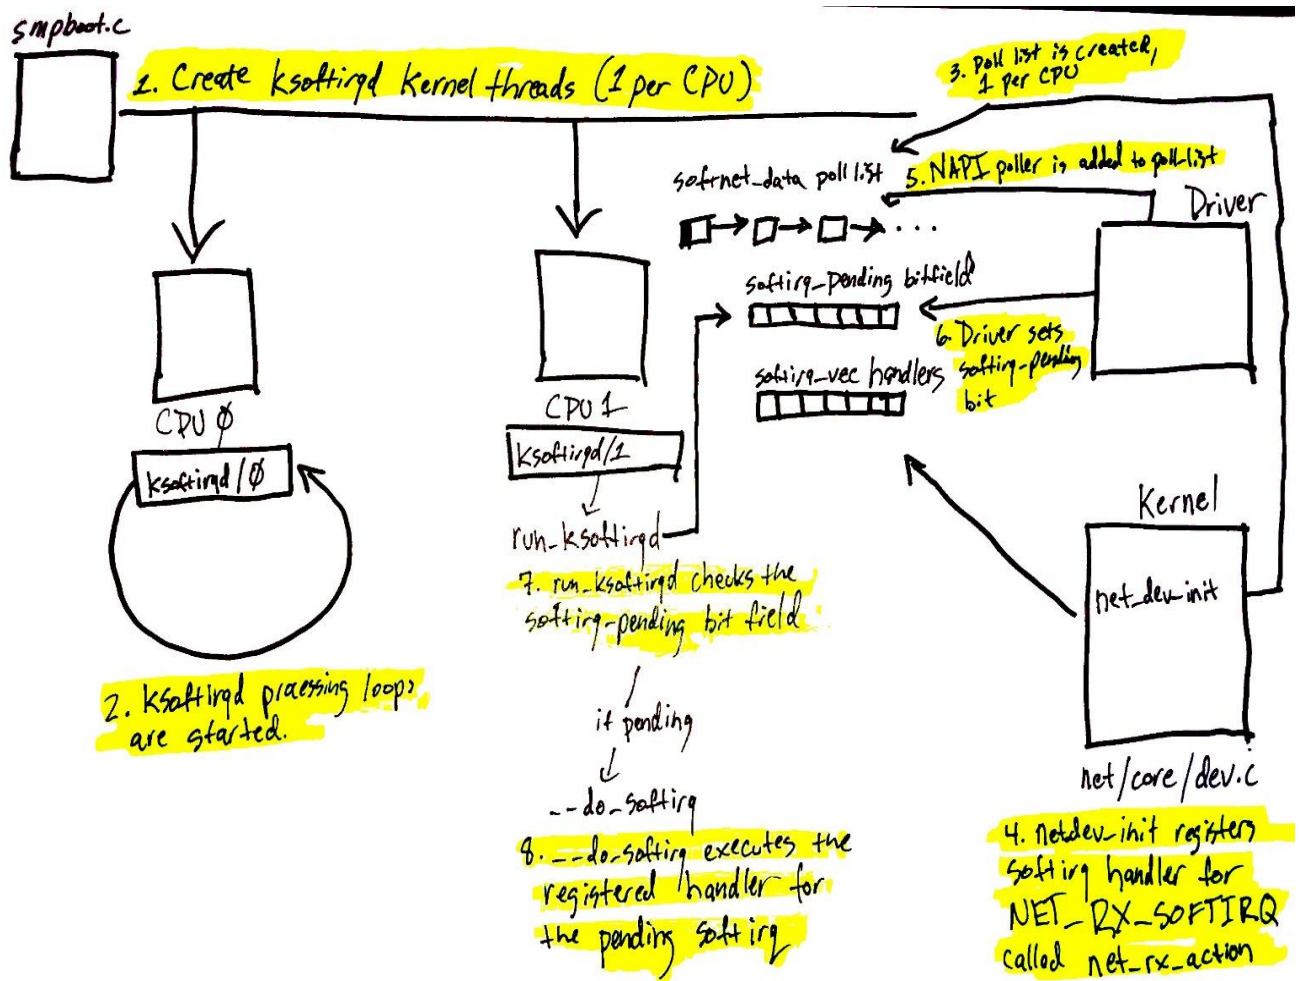 smpboot.c
1. Create ksoftirqd kernel threads (1 per CPU)
3. poll list is created,
1 per CPU
softnet_data poll list
5. NAPI poller is added to poll_list
Driver
. . .
softirq_pending bitfield
6. Driver sets
softirq-pending
bit
softirq_vec handlers
CPU 0
ksoftirqd/0
CPU 1
ksoftirqd/1
run_ksoftirqd
7. run_ksoftirqd checks the
softirq-pending bit field
if pending
__do_softirq
8. __do_softirq executes the
registered handler for
the pending softirq
2. ksoftirqd processing loops
are started.
Kernel
net_dev_init
net/core/dev.c
4. netdev_init registers
softirq handler for
NET_RX_SOFTIRQ
called net_rx_action